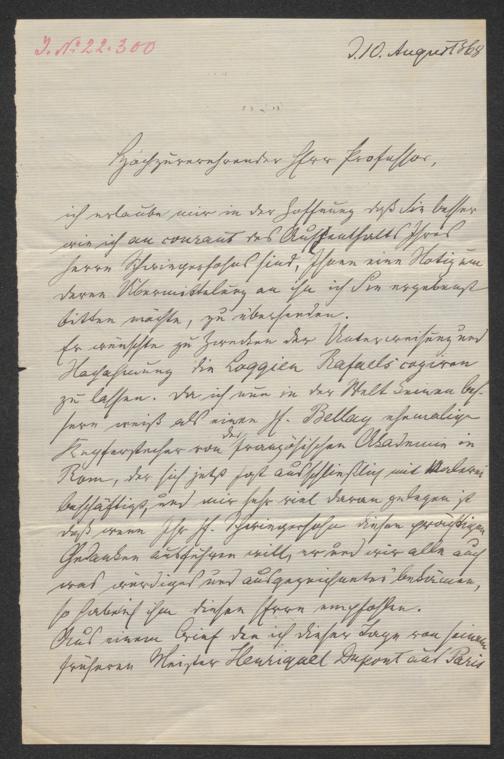 J. № 22.300
d. 10. August 1868
Hochzuverehrender Herr Professor,
ich erlaube mir in der Hoffnung daß Sie besser
wie ich au courant des Aufenthalts Ihres
Herrn Schwiegersohns sind, Ihnen eine Notiz um
deren Übermittelung an ihn ich Sie ergebenst
bitten möchte, zu übersenden.
Er wünschte zu Zwecken der Unterweisung und
Nachahmung die Loggien Rafaels copiren
zu lassen. Da ich nun in der Welt keinen bes-
sern weiß als einen H. Bellay ehemaligen
Kupferstecher von der französischen Akademie in
Rom, der sich jetzt fast ausschließlich mit Malerei
beschäftigt, und mir sehr viel daran gelegen ist
daß wenn Ihr H. Schwiegersohn diesen prächtigen
Gedanken ausführen will, er und wir alle auch
was würdiges und ausgezeichnetes bekämen,
so habe ich ihm diesen Herrn empfohlen.
Aus einem Brief den ich dieser Tage von seinem
früheren Meister Henriquel Dupont aus Paris